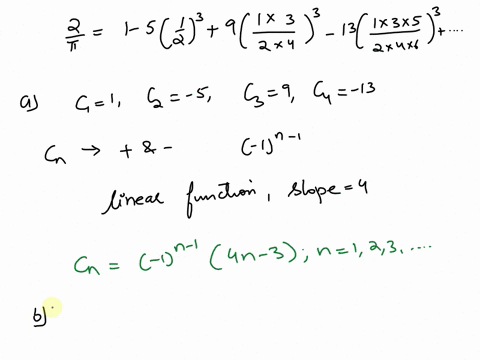 2/π = 1 - 5(1/2)³ + 9(1×3/2×4)³ - 13(1×3×5/2×4×6)³ + ....
a) C₁=1, C₂=-5, C₃=9, C₄=-13
Cn → + & - (-1)ⁿ⁻¹
linear function, slope=4
Cn = (-1)ⁿ⁻¹ (4n-3); n=1,2,3,....
b)